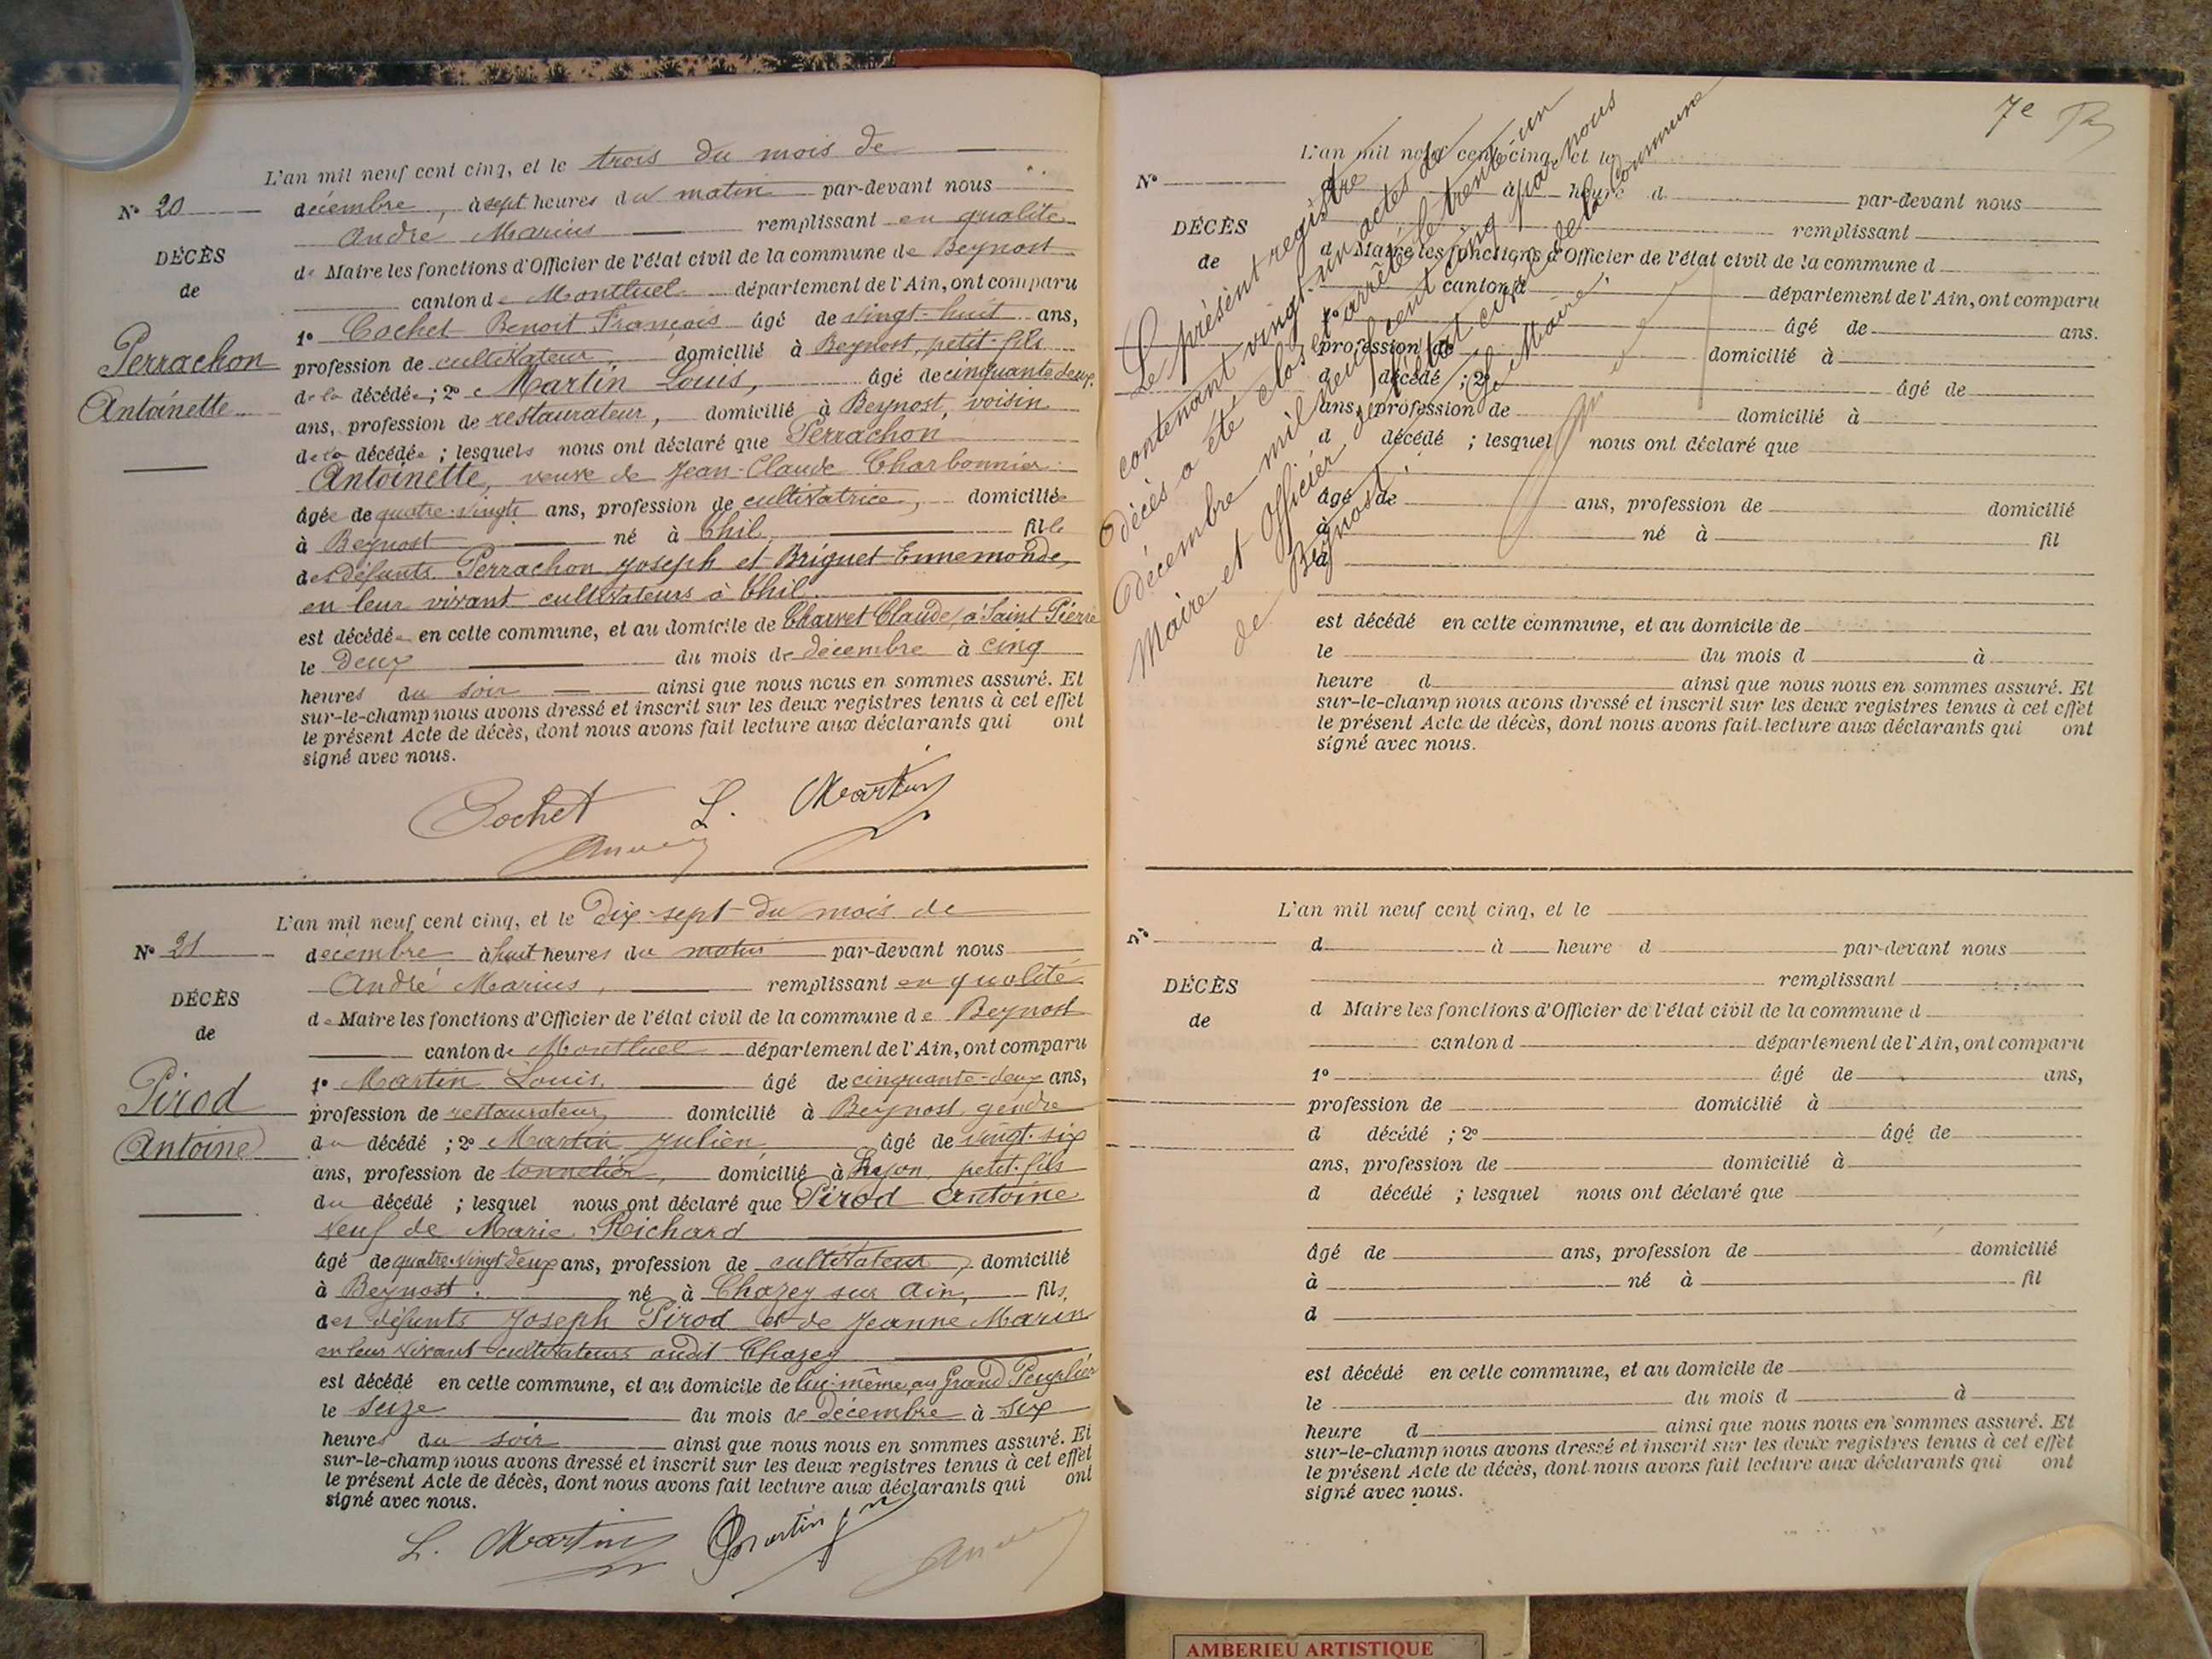 L'an mil neuf cent cinq, et le trois du mois de
N° 20 décembre, à sept heures du matin par-devant nous
André Marius remplissant en qualité
DÉCÈS
de Maire les fonctions d'Officier de l'état civil de la commune de Beynost
de
canton de Montluel département de l'Ain, ont comparu
1° Cochet Benoit François âgé de vingt-huit ans,
Perrachon
profession de cultivateur, domicilié à Beynost, petit-fils
de la décédée ; 2° Martin Louis, âgé de cinquante deux
Antoinette
ans, profession de restaurateur, domicilié à Beynost, voisin
de la décédée ; lesquels nous ont déclaré que Perrachon
Antoinette, veuve de Jean-Claude Charbonnier
âgée de quatre-vingts ans, profession de cultivatrice, domiciliée
à Beynost né à Thil, fille
des défunts Perrachon Joseph et Briguet Ennemonde,
en leur vivant cultivateurs à Thil.
est décédée en cette commune, et au domicile de Charvet Claude, à Saint Pierre
le deux du mois de décembre à cinq
heures du soir ainsi que nous nous en sommes assuré. Et
sur-le-champ nous avons dressé et inscrit sur les deux registres tenus à cet effet
le présent Acte de décès, dont nous avons fait lecture aux déclarants qui ont
signé avec nous.
Cochet L. Martin
L'an mil neuf cent cinq, et le Dix-sept du mois de
N° 21 décembre à huit heures du matin par-devant nous
André Marius, remplissant en qualité
DÉCÈS
de Maire les fonctions d'Officier de l'état civil de la commune de Beynost
de
canton de Montluel département de l'Ain, ont comparu
1° Martin Louis, âgé de cinquante-deux ans,
Pirod
profession de restaurateur, domicilié à Beynost, gendre
Antoine
du décédé ; 2° Martin Julien, âgé de vingt-six
ans, profession de tonnelier, domicilié à Lyon, petit-fils
du décédé ; lesquel nous ont déclaré que Pirod Antoine
veuf de Marie Richard
âgé de quatre-vingt deux ans, profession de cultivateur, domicilié
à Beynost. né à Chazey sur Ain, fils,
des défunts Joseph Pirod et de Jeanne Marin
en leur vivant cultivateurs audit Chazey
est décédé en cette commune, et au domicile de lui-même, au Grand Peuplier
le seize du mois de décembre à six
heures du soir ainsi que nous nous en sommes assuré. Et
sur-le-champ nous avons dressé et inscrit sur les deux registres tenus à cet effet
le présent Acte de décès, dont nous avons fait lecture aux déclarants qui ont
signé avec nous.
L. Martin Martin
7e
L'an mil neuf cent cinq, et le
N° à heure d par-devant nous
DÉCÈS
remplissant
de
d Maire les fonctions d'Officier de l'état civil de la commune d
canton d département de l'Ain, ont comparu
1° âgé de ans.
profession de domicilié à
d décédé ; 2° âgé de
ans, profession de domicilié à
d décédé ; lesquel nous ont déclaré que
âgé de ans, profession de domicilié
à né à fil
d
est décédé en cette commune, et au domicile de
le du mois d à
heure d ainsi que nous nous en sommes assuré. Et
sur-le-champ nous avons dressé et inscrit sur les deux registres tenus à cet effet
le présent Acte de décès, dont nous avons fait lecture aux déclarants qui ont
signé avec nous.
Le présent registre
contenant vingt-un actes de
décès a été clos et arrêté le trente-un
décembre mil neuf cent cinq par nous
Maire et Officier de l'état civil de la Commune
de Beynost.
Le Maire,
L'an mil neuf cent cinq, et le
N° d à heure d par-devant nous
remplissant
DÉCÈS
d Maire les fonctions d'Officier de l'état civil de la commune d
de
canton d département de l'Ain, ont comparu
1° âgé de ans,
profession de domicilié à
d décédé ; 2° âgé de
ans, profession de domicilié à
d décédé ; lesquel nous ont déclaré que
âgé de ans, profession de domicilié
à né à fil
d
est décédé en cette commune, et au domicile de
le du mois d à
heure d ainsi que nous nous en sommes assuré. Et
sur-le-champ nous avons dressé et inscrit sur les deux registres tenus à cet effet
le présent Acte de décès, dont nous avons fait lecture aux déclarants qui ont
signé avec nous.
AMBERIEU ARTISTIQUE